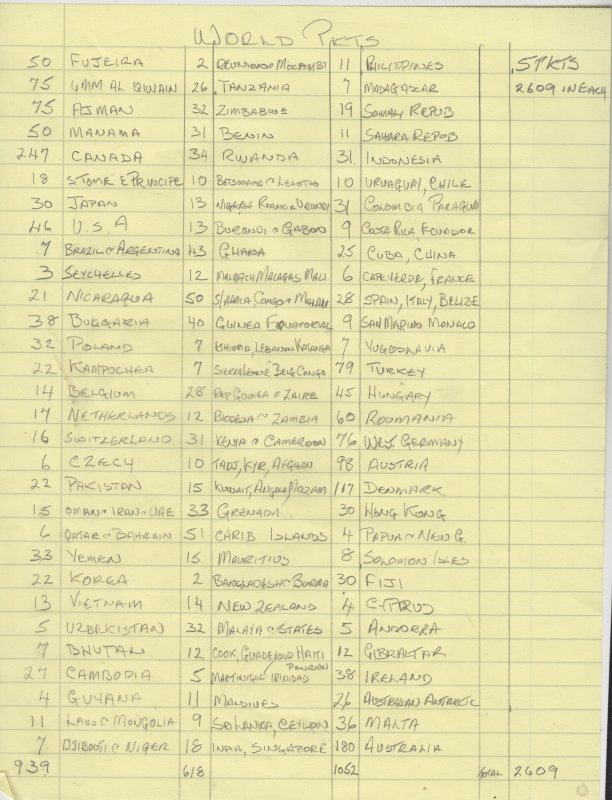 WORLD PKTS
50 FUJEIRA 2 REUNION & MOCAMBI 11 PHILIPPINES 5 PKTS
75 UMM AL QIWAIN 26 TANZANIA 7 MADAGASCAR 2609 IN EACH
75 AJMAN 32 ZIMBABWE 19 SOMALI REPUB
50 MANAMA 31 BENIN 11 SAHARA REPUB
247 CANADA 34 RWANDA 31 INDONESIA
18 S TOME E PRINCIPE 10 BOTSWANA & LESOTHO 10 URUGUAY, CHILE
30 JAPAN 13 NIGERIA RUANDA URUNDI 31 COLOMBIA PARAGUAY
46 U.S.A 13 BURUNDI & GABON 9 COSTA RICA, ECUADOR
7 BRAZIL & ARGENTINA 43 GHANA 25 CUBA, CHINA
3 SEYCHELLES 12 MALAGASY MALI 6 CAPE VERDE, FRANCE
21 NICARAGUA 50 S/AFRICA CONGO & 28 SPAIN, ITALY, BELIZE
38 BULGARIA 40 GUINEA EQUATORIAL 9 SAN MARINO MONACO
32 POLAND 7 ETHIOPIA, LEBANON KATANGA 7 YUGOSLAVIA
22 KAMPUCHEA 7 SIERRA LEONE BELG CONGO 79 TURKEY
14 BELGIUM 28 REP GUINEA & ZAIRE 45 HUNGARY
17 NETHERLANDS 12 RHODESIA & ZAMBIA 60 ROUMANIA
16 SWITZERLAND 31 KENYA & CAMEROON 76 WEST GERMANY
6 CZECH 10 TADJ, KYR, AFGHAN 98 AUSTRIA
22 PAKISTAN 15 KUWAIT, ANGOLA, MOZAM 117 DENMARK
15 OMAN & IRAN & UAE 33 GRENADA 30 HONG KONG
6 QATAR & BAHRAIN 51 CARIB ISLANDS 4 PAPUA & NEW G.
33 YEMEN 15 MAURITIUS 8 SOLOMON ISLES
22 KOREA 2 BANGLADESH & BURMA 30 FIJI
13 VIETNAM 14 NEW ZEALAND 4 CYPRUS
5 UZBEKISTAN 32 MALAYA & STATES 5 ANDORRA
7 BHUTAN 12 COOK, GUADELOUP HAITI 12 GIBRALTAR
27 CAMBODIA 5 MARTINIQUE TRINIDAD PENRHYN 38 IRELAND
4 GUYANA 11 MALDIVES 26 AUSTRALIAN ANTARCTIC
11 LAOS & MONGOLIA 9 SRI LANKA, CEYLON 36 MALTA
7 DJIBOUTI & NIGER 18 INDIA, SINGAPORE 180 AUSTRALIA
939 618 1052 TOTAL 2609